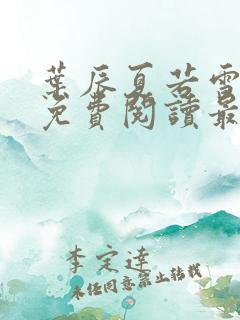 葉辰夏若雪
免費閱讀最
李定達
未經同意禁止轉載